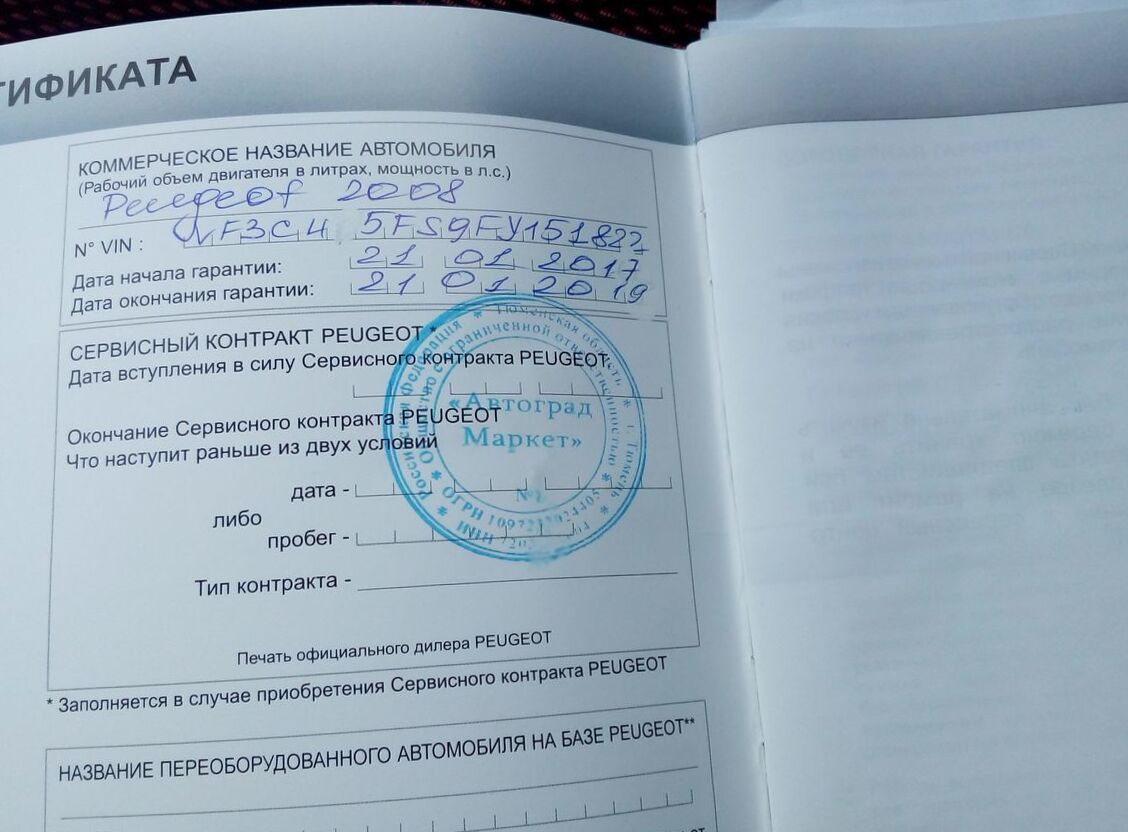 ТИФИКАТА
КОММЕРЧЕСКОЕ НАЗВАНИЕ АВТОМОБИЛЯ
(Рабочий объем двигателя в литрах, мощность в л.с.)
Peugeot 2008
N° VIN : VF3C4 5FS9FY151827
Дата начала гарантии: 21 01 2017
Дата окончания гарантии: 21 01 2019
СЕРВИСНЫЙ КОНТРАКТ PEUGEOT *
Дата вступления в силу Сервисного контракта PEUGEOT:
Окончание Сервисного контракта PEUGEOT
Что наступит раньше из двух условий
дата -
либо
пробег -
Тип контракта -
Российская Федерация * Тюменская область * г. Тюмень *
Общество с ограниченной ответственностью *
«Автоград
Маркет»
ОГРН
ИНН
Печать официального дилера PEUGEOT
* Заполняется в случае приобретения Сервисного контракта PEUGEOT
НАЗВАНИЕ ПЕРЕОБОРУДОВАННОГО АВТОМОБИЛЯ НА БАЗЕ PEUGEOT**